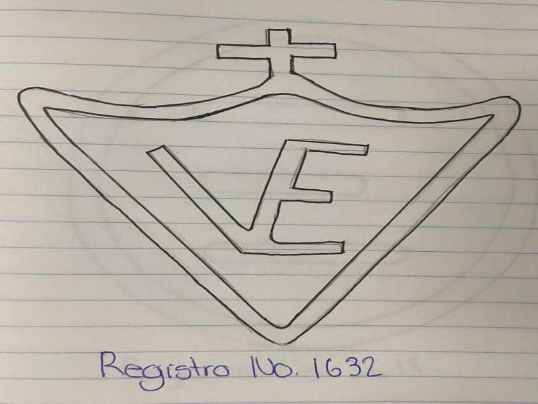 VE
Registro No. 1632